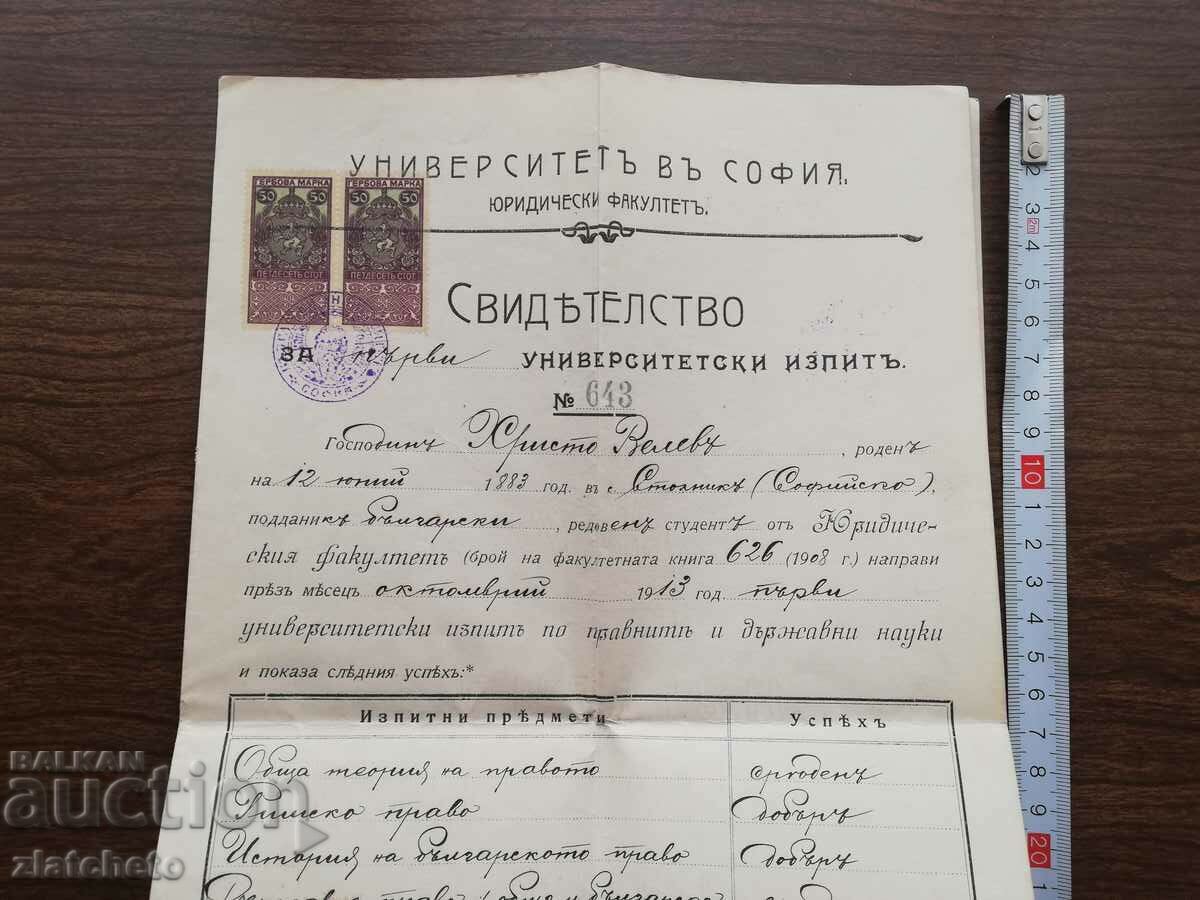 УНИВЕРСИТЕТЪ ВЪ СОФИЯ.
ЮРИДИЧЕСКИ ФАКУЛТЕТЪ.
ГЕРБОВА МАРКА ГЕРБОВА МАРКА
50 50 50 50
ПЕТДЕСЕТЬ СТОТ ПЕТДЕСЕТЬ СТОТ
СВИДѢТЕЛСТВО
ЗА първи УНИВЕРСИТЕТСКИ ИЗПИТЪ.
СОФИЯ
№ 643
Господинъ Христо Велевъ, роденъ
на 12 юний 1883 год. въ с. Столникъ (Софийско),
подданикъ български, редовенъ студентъ отъ Юридиче-
ския факултетъ (брой на факултетната книга 626 (1908 г.) направи
прѣзъ мѣсецъ октомврий 1913 год първи
университетски изпитъ по правнитѣ и държавни науки
и показа слѣдния успѣхъ:*
Изпитни прѣдмети Успѣхъ
Обща теория на правото срѣденъ
Римско право добъръ
История на българското право добъръ
право (общо и българско
BALKAN
auction
zlatcheto
1 2 3 2m 4 5 6 7 8 9 10 1 2 3 4 5 6 7 8 9 20 1